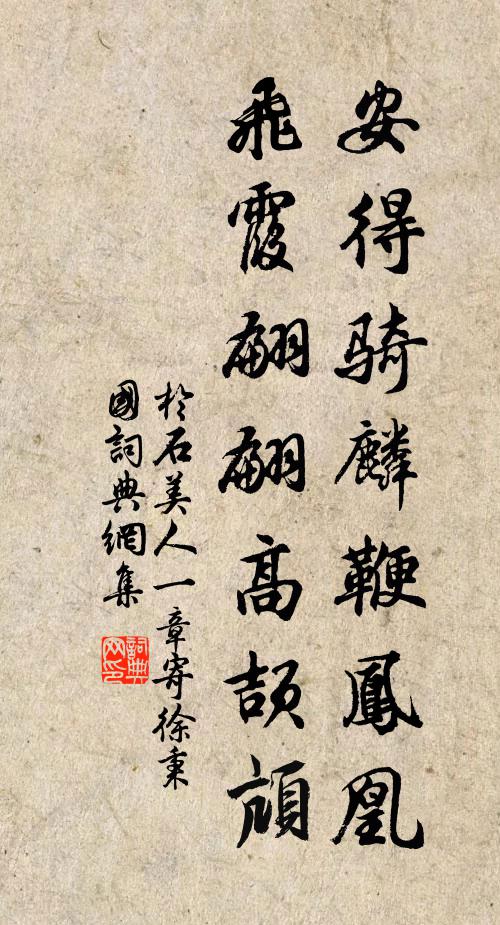 安得騎麟鞭鳳凰
飛霞翩翩高頡頏
於石美人一章寄徐秉
國詞典網集
詞典
网印